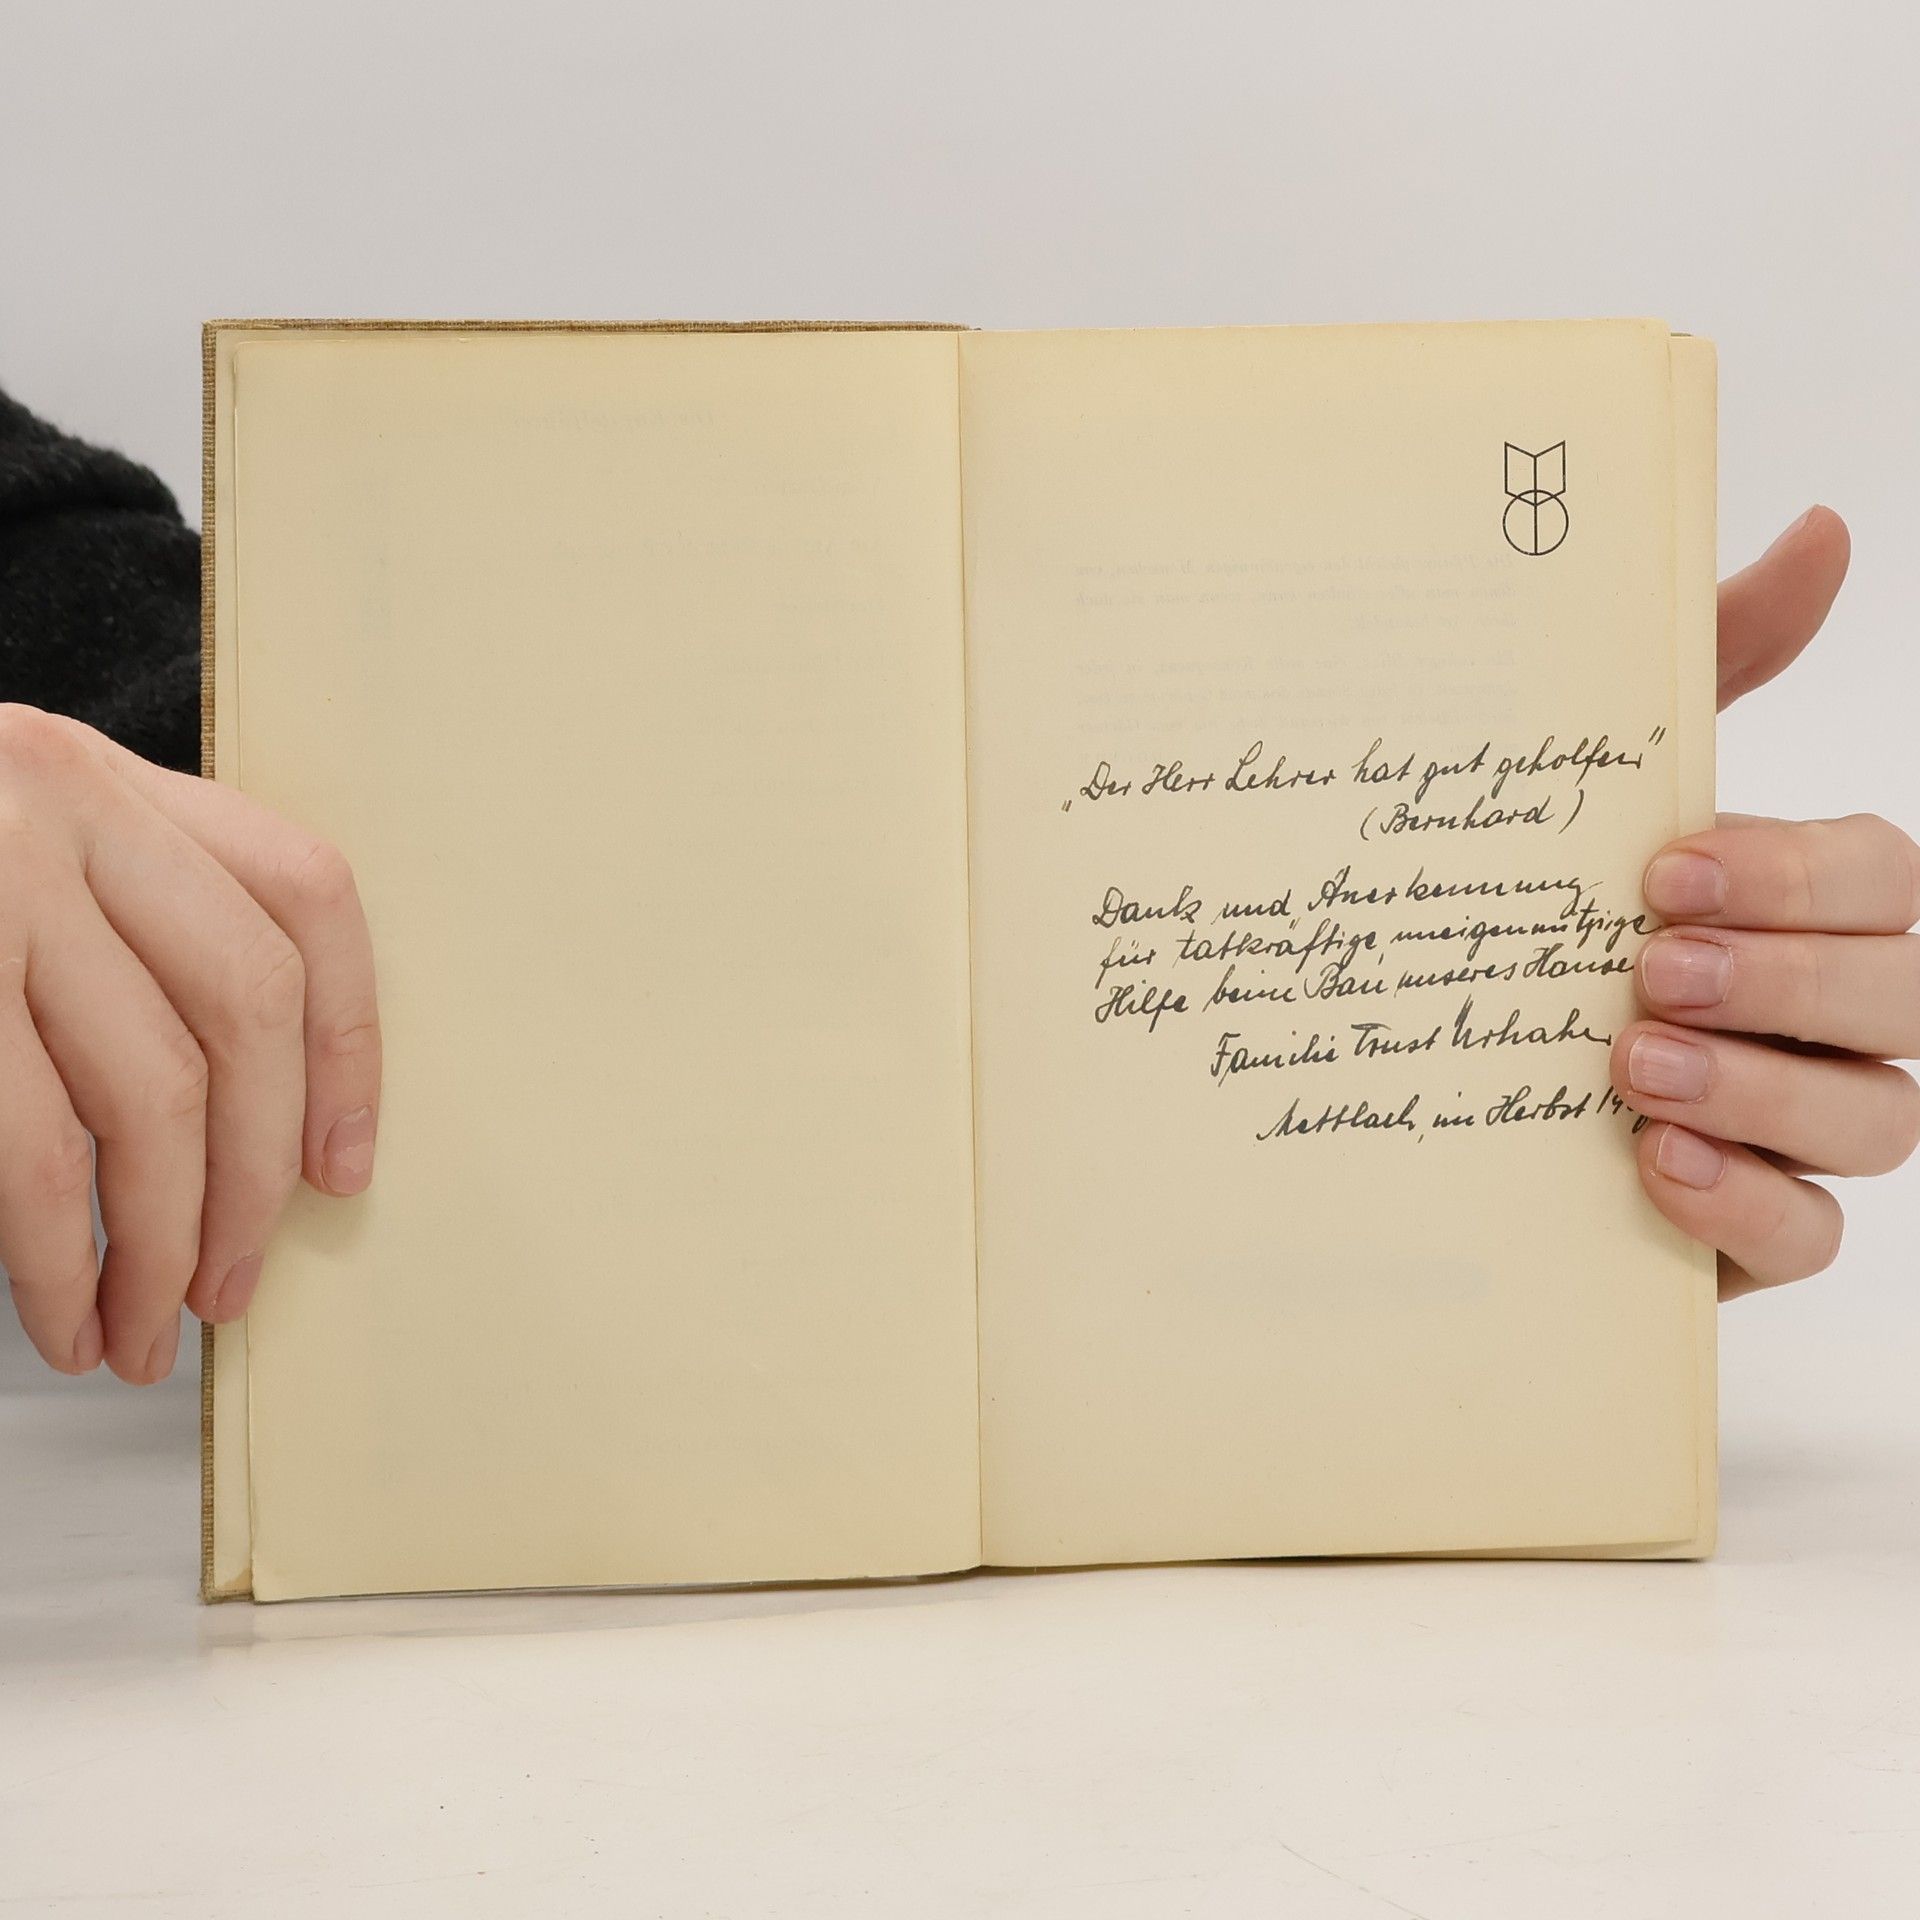 „Der Herr Lehrer hat gut geholfen"
(Bernhard)
Dank und Anerkennung
für tatkräftige, uneigennützige
Hilfe beim Bau unseres Hause
Familie Ernst Urhahn
Mettlach, im Herbst